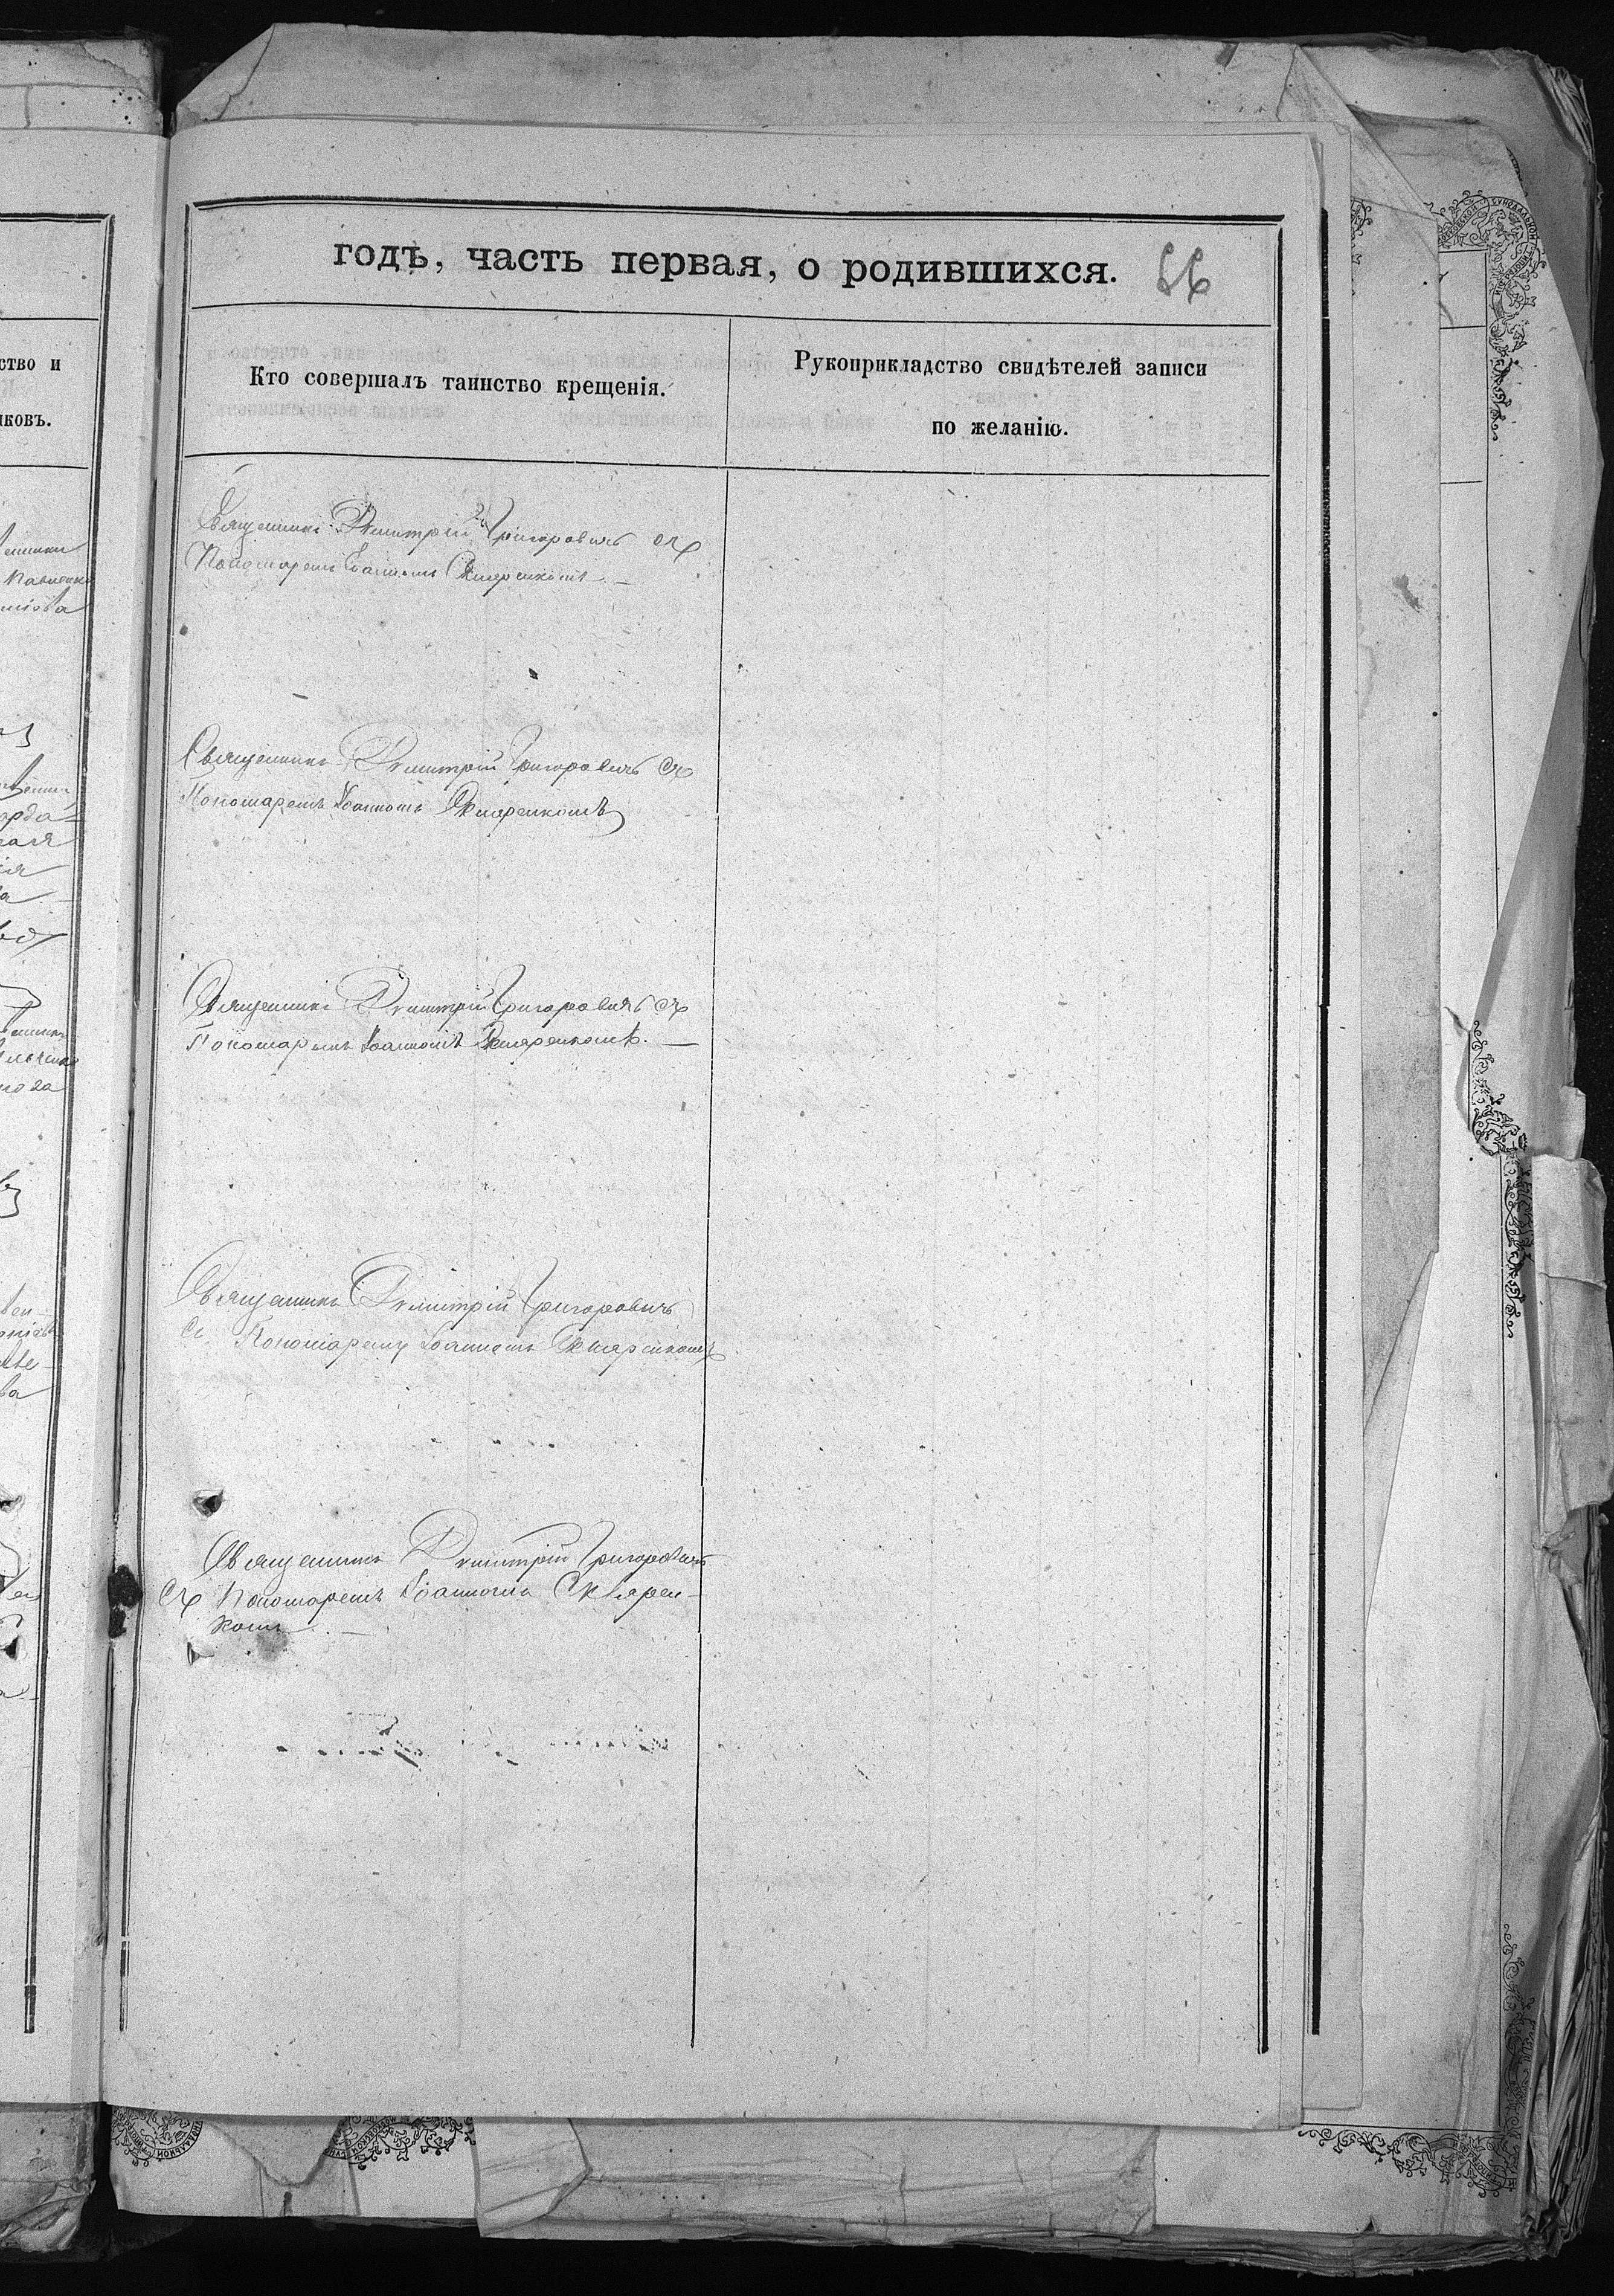 годъ, часть первая, о родившихся.
Кто совершалъ таинство крещенія.
Рукоприкладство свидѣтелей записи
по желанію.
Священникъ Димитрій Григоровичъ съ
Пономаремъ Іоанномъ Скляренкомъ. —
Священникъ Димитрій Григоровичъ съ
Пономаремъ Іоанномъ Скляренкомъ
Священникъ Димитрій Григоровичъ съ
Пономаремъ Іоанномъ Скляренкомъ. —
Священникъ Димитрій Григоровичъ
съ Пономаремъ Іоанномъ Скляренкомъ
Священникъ Димитрій Григоровичъ
съ Пономаремъ Іоанномъ Скларен-
комъ. —
ство и
ковъ.